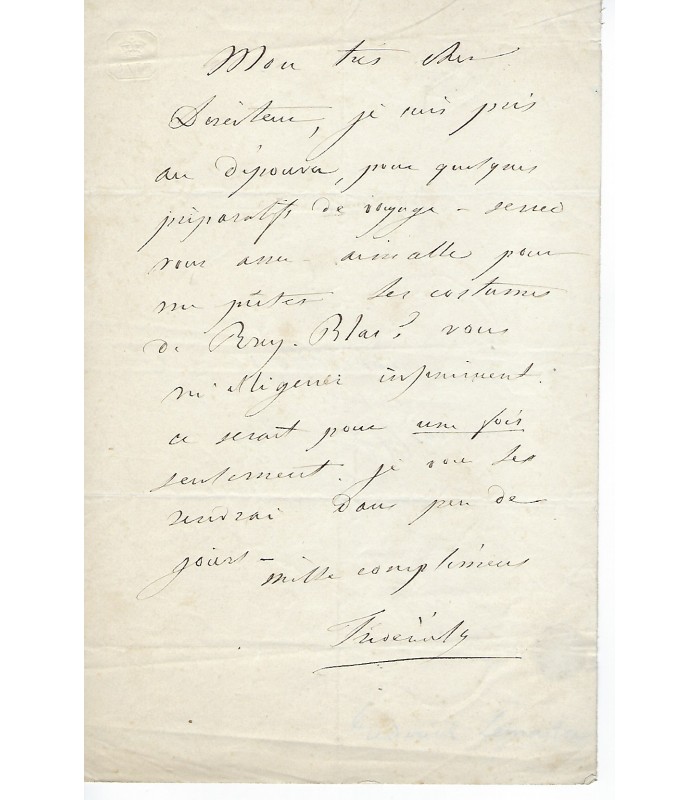 Mon très cher
Directeur, je suis pris
au dépourvu, pour quelques
préparatifs de voyage – seriez
vous assez aimable pour
me prêter les costumes
de Ruy-Blas? vous
m'obligerez infiniment.
ce serait pour une fois
seulement. je vous les
rendrai dans peu de
jours –
mille complimens